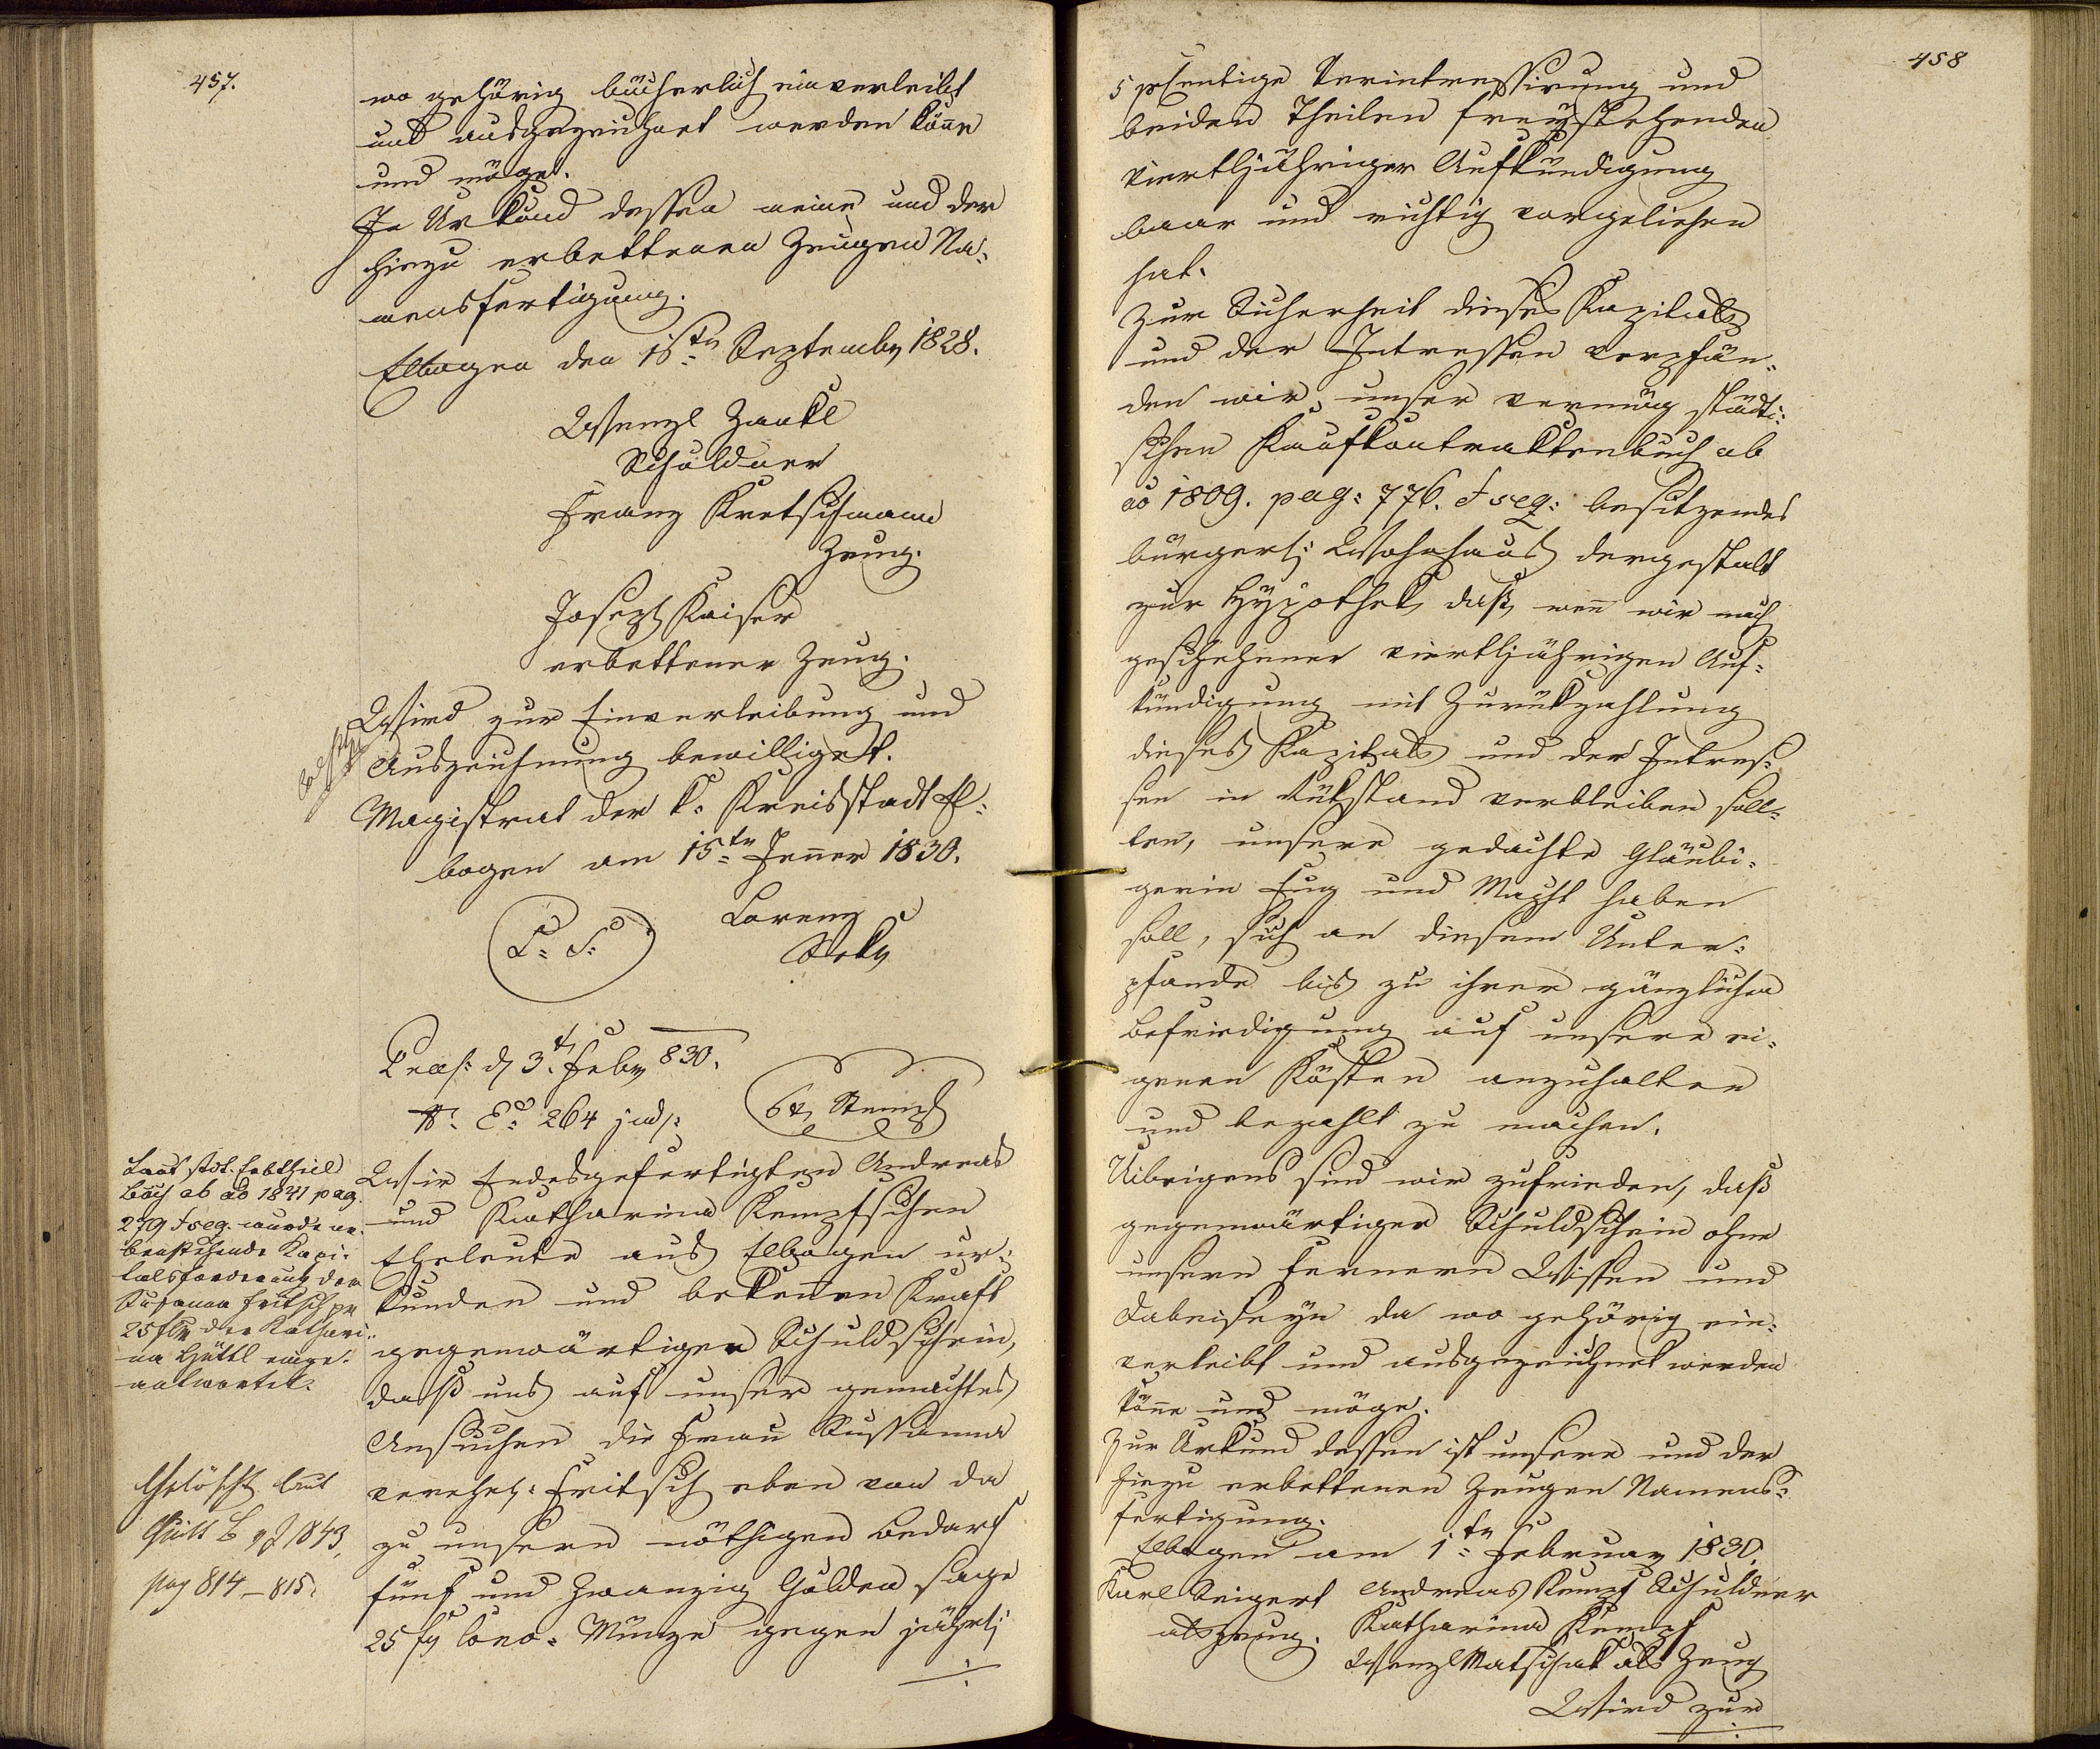 457.
wo gehörig bücherlich einverleibt
und ausgezeichnet werden könne
und möge.
In Urkund dessen meine und der
hiezu erbettenen Zeugen Na-
mensfertigung.
Elbogen den 15ten September 1828.
Wenzl Zankl
Schuldner
Franz Kretschmann
Zeug.
Joseph Kaiser
erbettener Zeug.
Wird zur Einverleibung und
Auszeichnung bewilliget.
Magistrat der k. Kreisstadt El-
bogen am 15ten Jenner 1830.
L. S.
Lorenz
Sekr
Praes: d 3t Febr 830.
N: E: 264 jud:
6 xr Stempl
Laut stdt. Erbtheil
buch ab ao 1841 pag.
279 & seq. wurde ne-
benstehende Kapi-
talsforderung der
Susanna Fritsch pr
25 fl der Kathari-
na Hüttl einge-
antwortet.
Gelöscht laut
Quitt B 1843,
pag 814–815.
Wir Endesgefertigten Andreas
und Katharina Kempfschen
Eheleute aus Elbogen ur-
kunden und bekennen Kraft
gegenwärtigen Schuldschein,
daß uns auf unser gemachtes
Ansuchen die Frau Sussanna
verehel: Fritsch eben von da
zu unsern nöthigen Bedarf
fünf und Zwanzig Gulden sage
25 fl Conv. Münze gegen jährl:
458
5 prcentige Verintressirung und
beiden Theilen freystehenden
viertljähriger Aufkündigung
baar und richtig vorgeliehen
hat.
Zur Sicherheit dieses Kapitals
und der Intressen verpfän-
den wir unser vermög städti-
schen Kaufkontraktenbuch ab
ao 1809. pag: 776. & seq: besitzendes
bürgerl: Wohnhaus dergestalt
zur Hypothek, daß, wenn wir nach
geschehener viertljährigen Auf-
kündigung mit Zurükzahlung
dieses Kapitals und der Intres-
sen in Rükstand verbleiben soll-
ten, unsere gedachte Gläubi-
gerin Fug und Macht haben
soll, sich an diesem Unter-
pfande bis zu ihrer gänzlichen
Befriedigung auf unsere ei-
genen Kösten anzuhalten
und bezahlt zu machen.
Uibrigens sind wir zufrieden, daß
gegenwärtiger Schuldschein ohne
unsern fernern Wissen und
Dabeiseyn da wo gehörig ein-
verleibt und ausgezeichnet werden
könne und möge.
Zur Urkund dessen ist unsere und der
hiezu erbettenen Zeugen Namens-
fertigung.
Elbogen am 1ten Februar 1830.
Karl Seigert Andreas Kempf Schuldner
als Zeug. Katharina Kempf
Wenzl Matschak als Zeug
Wird zur